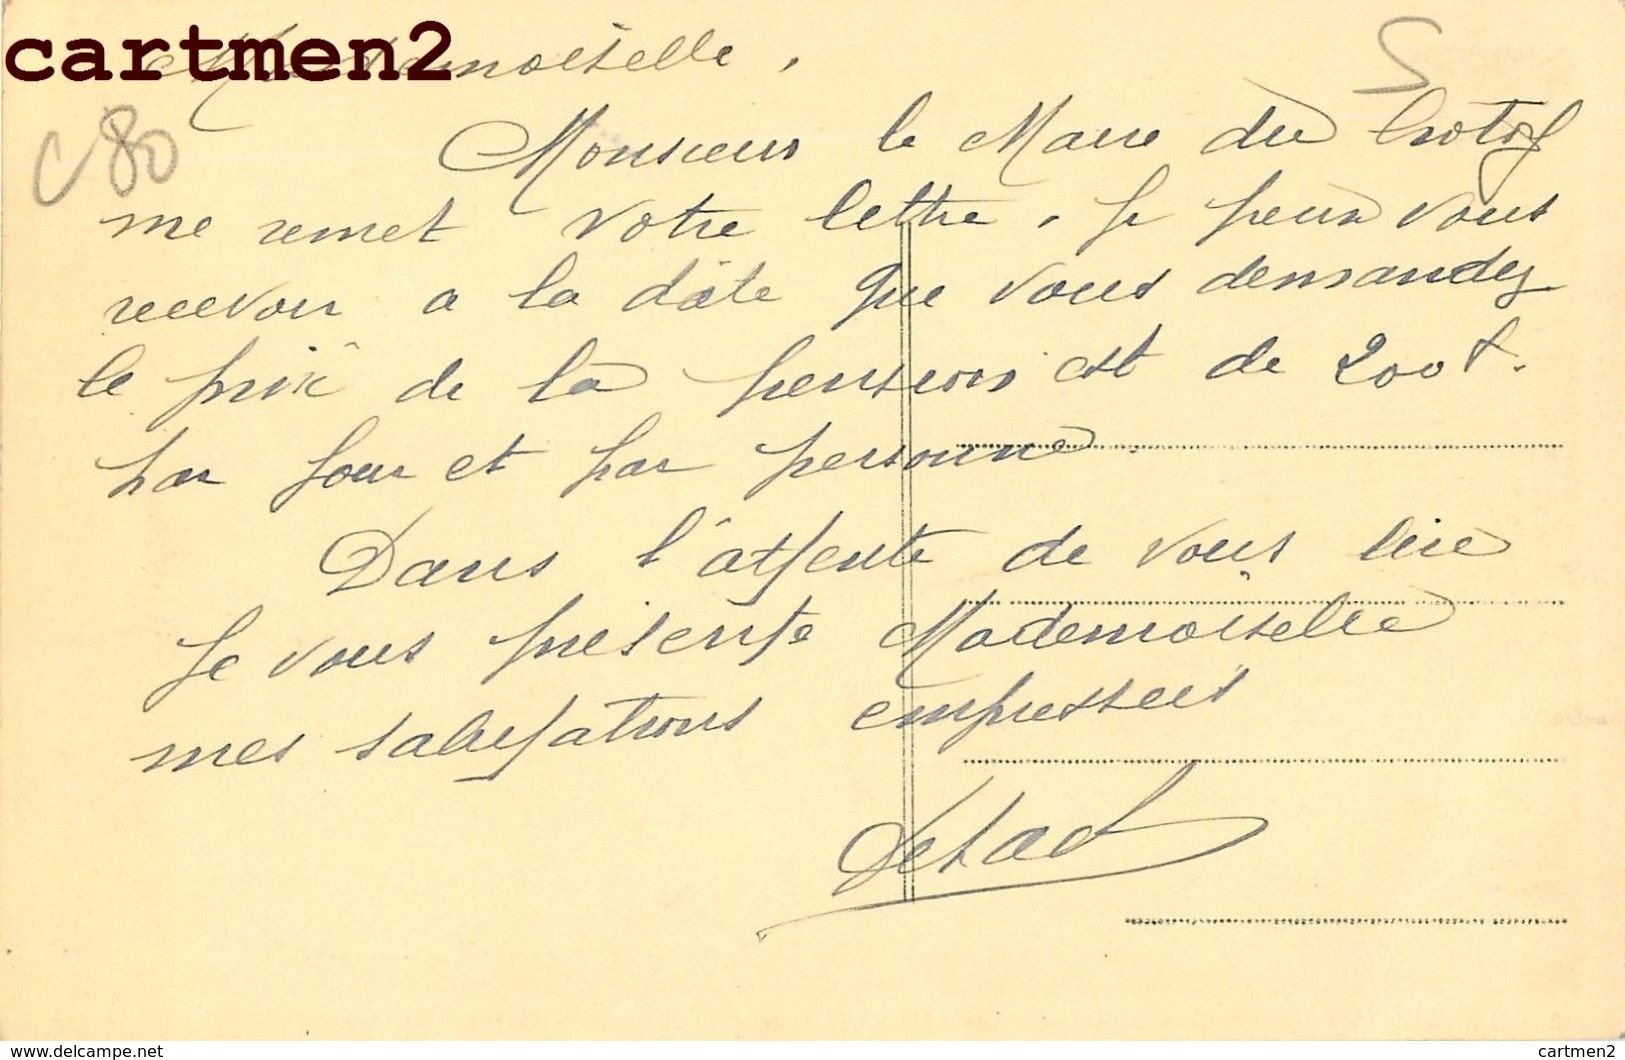 cartmen2
Mademoiselle,
S
C80
Monsieur le Maire du Crotoy
me remet votre lettre. Je peux vous
recevoir a la date que vous demandez
le prix de la pension est de 200 f.
par jour et par personne.
Dans l'attente de vous lire
Je vous présente Mademoiselle
mes salutations empressées
cartmen2
https://www.delcampe.net